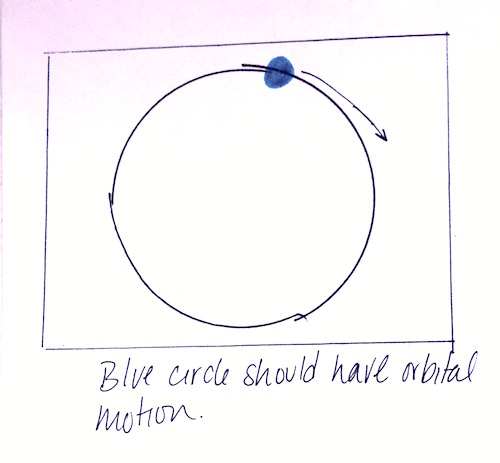 Blue circle should have orbital
motion.